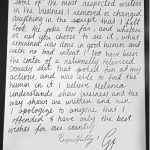 some of the most respected writers in
the business! I removed or changed
anything in the script that I felt
took the joke too far, and whether
or not you choose to see it, what
remained was done in good humor and
with no bad intent! I too have been
the center of a nationally televised
comedy skit that poked fun at my
actions, and was able to find the
humor in it. I believe Melania
understands show business and the
way shows are written and run.
I apologize to anyone that I
offended. I have only the best
wishes for our country.
Respectfully,